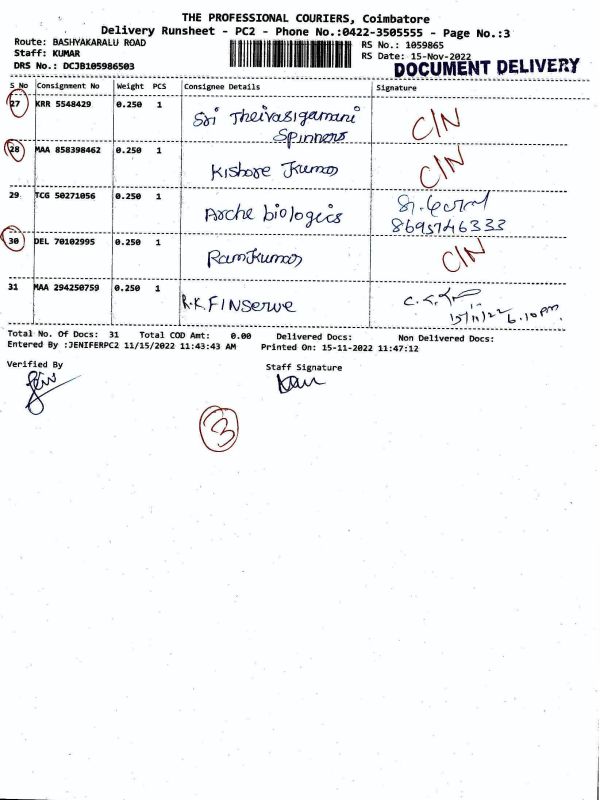 THE PROFESSIONAL COURIERS, Coimbatore
Delivery Runsheet - PC2 - Phone No.:0422-3505555 - Page No.:3
Route: BASHYAKARALU ROAD
RS No.: 1059865
Staff: KUMAR
RS Date: 15-Nov-2022
DRS No.: DCJB105986503
DOCUMENT DELIVERY
S No Consignment No Weight PCS Consignee Details Signature
27 KRR 5548429 0.250 1 Sri Theivasigamani Spinners C/N
28 MAA 858398462 0.250 1 Kishore Kumar C/N
29 TCG 50271056 0.250 1 Arche biologics 8695746333
30 DEL 70102995 0.250 1 Ramkumar C/N
31 MAA 294250759 0.250 1 R.K.FINSERVE 15/11/22 6.10pm
Total No. Of Docs: 31 Total COD Amt: 0.00 Delivered Docs: Non Delivered Docs:
Entered By :JENIFERPC2 11/15/2022 11:43:43 AM Printed On: 15-11-2022 11:47:12
Verified By Staff Signature
3